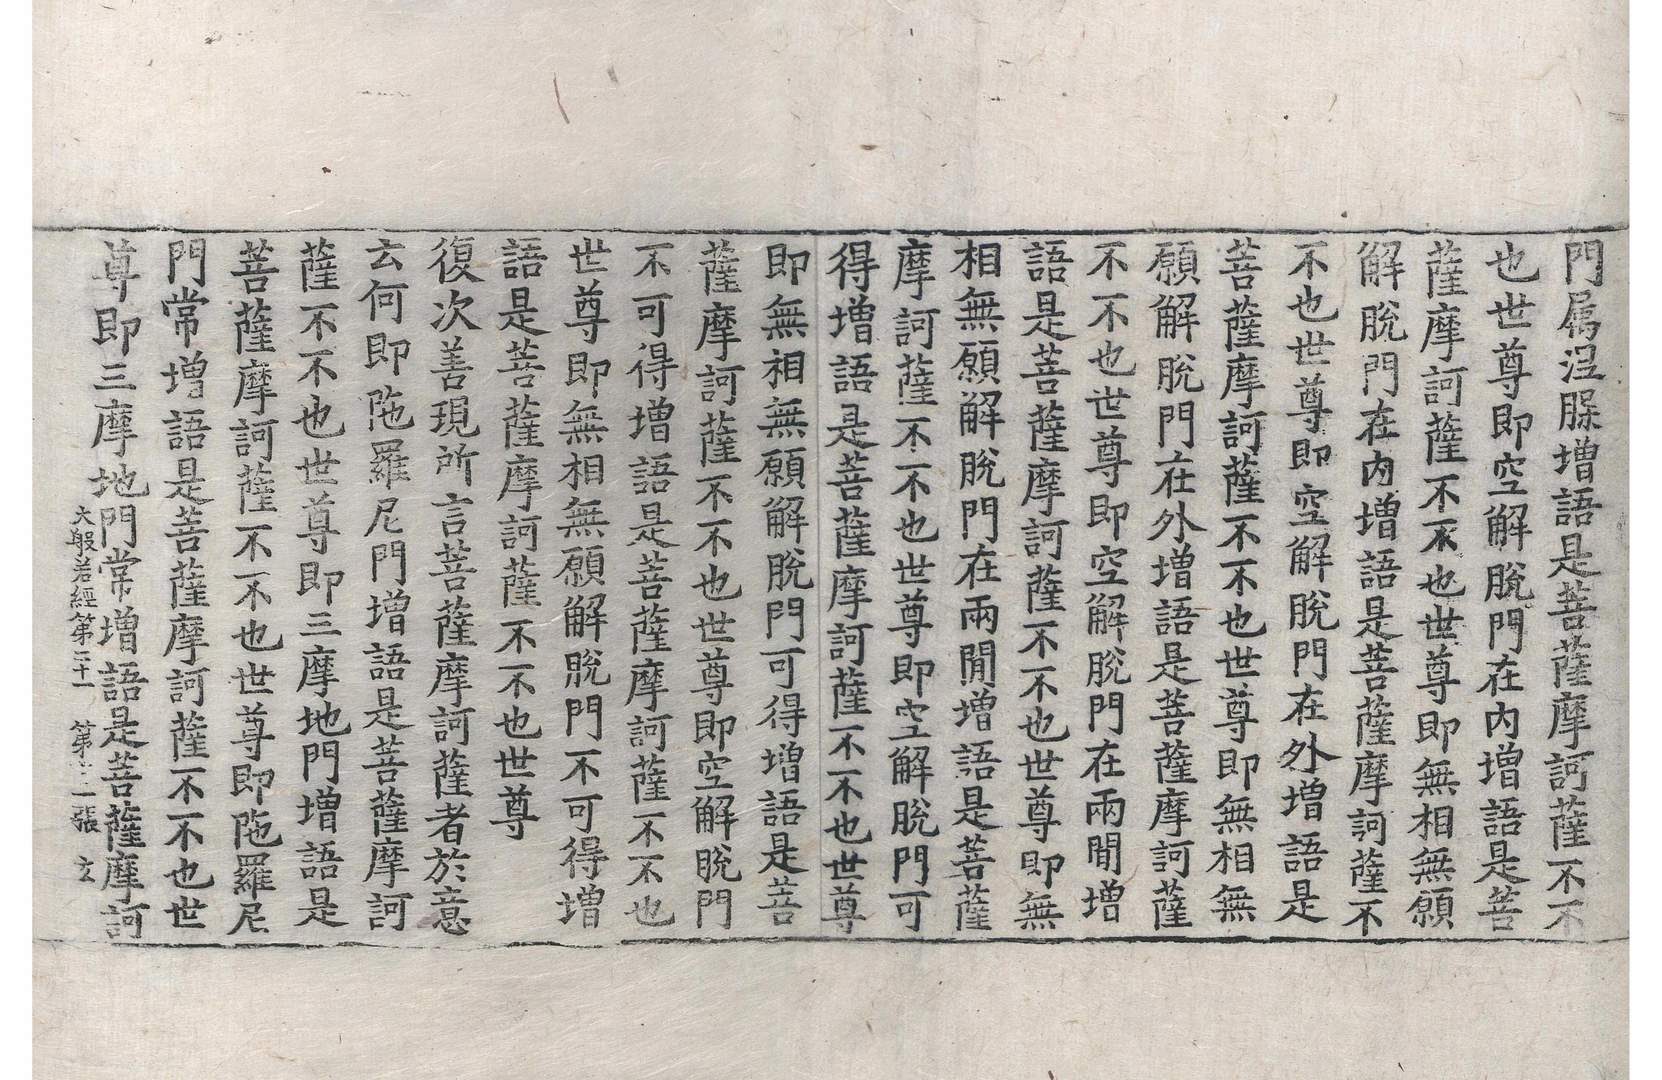 門属涅膝增語是菩薩摩訶薩不不
也世尊即空解脫門在内增語是菩
薩摩訶薩不不也世尊即無相無願
解脫門在内增語是菩薩摩訶薩不
不也世尊即空解脫門在外增語是
菩薩摩訶薩不不也世尊即無相無
願解脫門在外增語是菩薩摩訶薩
不不也世尊即空解脫門在兩間增
語是菩薩摩訶薩不不也世尊即無
相無願解脫門在兩間增語是菩薩
摩訶薩不不也世尊即空解脫門可
得增語是菩薩摩訶薩不不也世尊
即無相無願解脫門可得增語是菩
薩摩訶薩不不也世尊即空解脫門
不可得增語是菩薩摩訶薩不不也
世尊即無相無願解脫門不可得增
語是菩薩摩訶薩不不也世尊
復次善現所言菩薩摩訶薩者於意
云何即陁羅尼門增語是菩薩摩訶
薩不不也世尊即三摩地門增語是
菩薩摩訶薩不不也世尊即陁羅尼
門常增語是菩薩摩訶薩不不也世
尊即三摩地門常增語是菩薩摩訶
大般若經第三十一 第十二張 玄